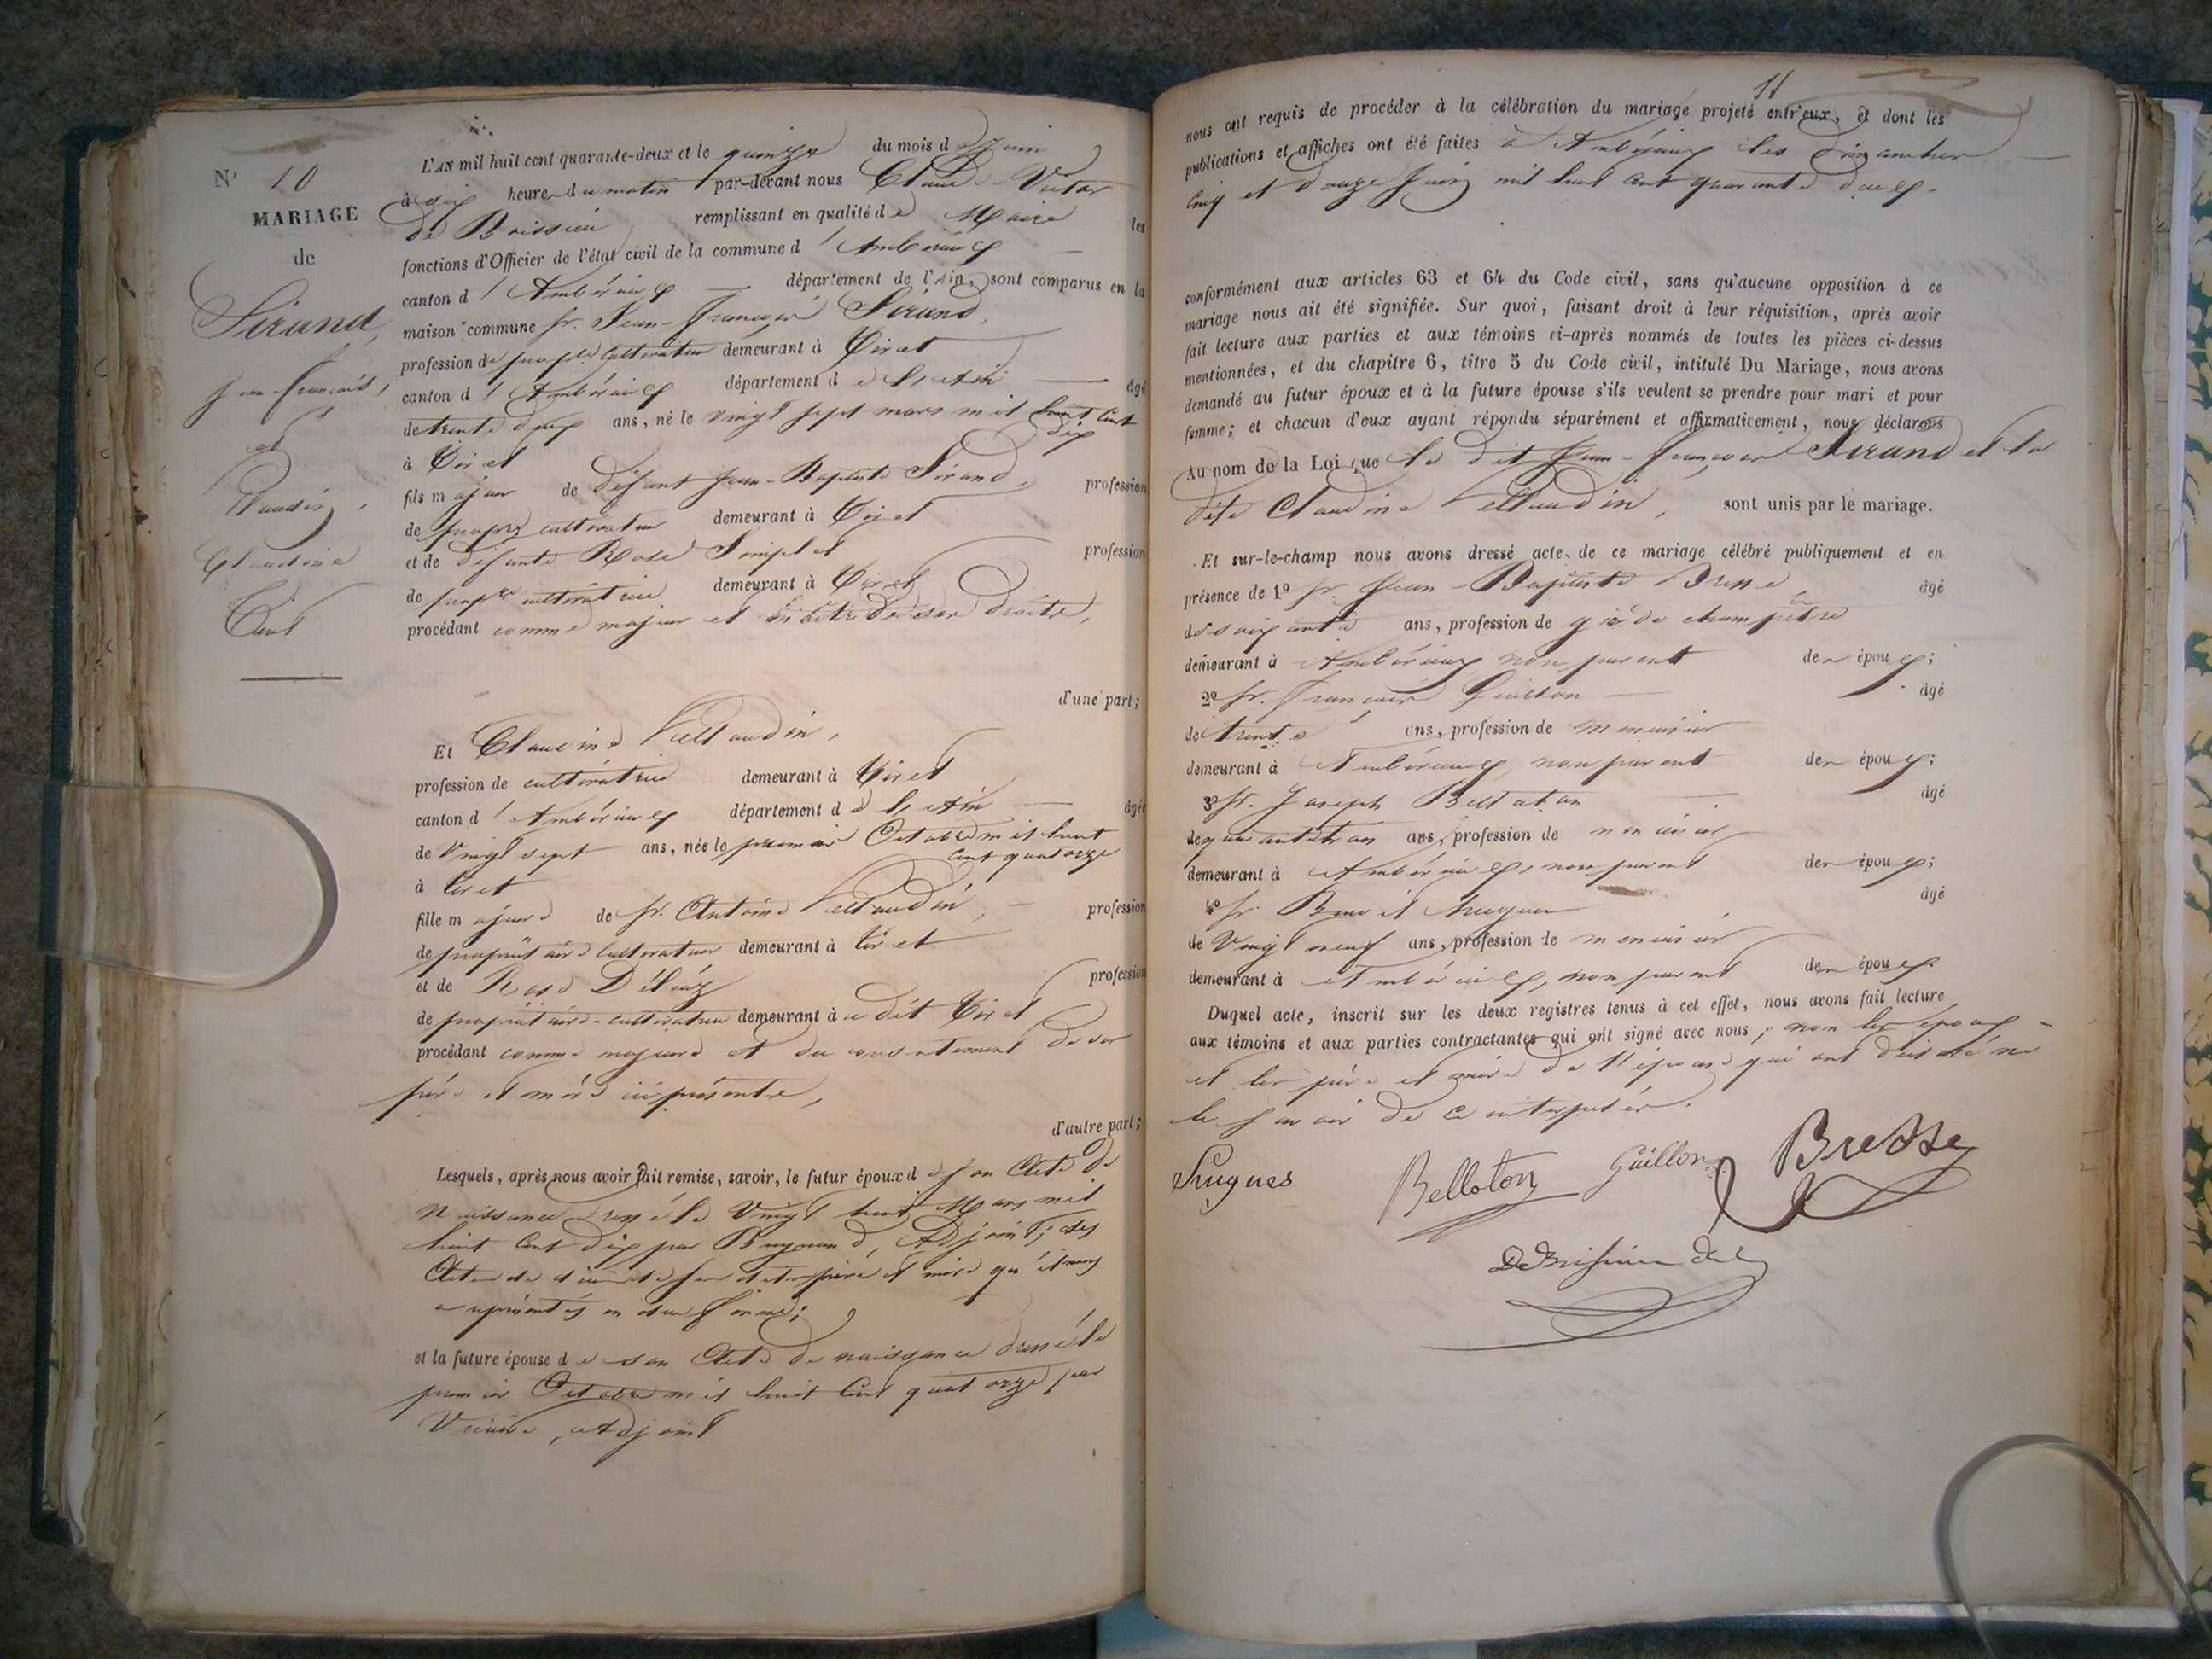 N° 10
MARIAGE
de
Sirand,
Jean-François,
et
Claudine
Tiret
L'AN mil huit cent quarante-deux et le quinze du mois de Juin
à six heures du matin par-devant nous Claude-Victor
De Boissieu remplissant en qualité de Maire les
fonctions d'Officier de l'état civil de la commune d'Ambérieux
canton d'Ambérieux département de l'Ain, sont comparus en la
maison commune Sr. Jean-François Sirand,
profession de propre cultivateur demeurant à Tiret
canton d'Ambérieux département de l'Ain âgé
de trente deux ans, né le vingt sept mars mil huit cent
dix
à Tiret
fils majeur de défunt Jean-Baptiste Sirand, profession
de propre cultivateur demeurant à Tiret
et de défunte Rose Simplet profession
de propre cultivatrice demeurant à Tiret
procédant comme majeur et maître de ses droits,
d'une part;
Et Claudine
profession de cultivatrice demeurant à Tiret
canton d'Ambérieux département de l'Ain âgée
de Vingt sept ans, née le premier Octobre mil huit
cent quatorze
à Tiret
fille majeure de Sr. Antoine profession
de propriétaire cultivateur demeurant à Tiret
et de Rose profession
de propriétaire-cultivatrice demeurant à ce dit Tiret
procédant comme majeure et du consentement de ses
père et mère ici présents,
d'autre part;
Lesquels, après nous avoir fait remise, savoir, le futur époux de son Acte de
Naissance dressé le Vingt huit Mars mil
huit cent dix par Adjoint; des
Actes de décès de ses dits père et mère qu'il nous
a représentés en due forme;
et la future épouse de son Acte de naissance dressé le
premier Octobre mil huit cent quatorze par
Adjoint
11
nous ont requis de procéder à la célébration du mariage projeté entr'eux, et dont les
publications et affiches ont été faites à Ambérieux les dimanches
cinq et douze Juin mil huit cent quarante deux.
conformément aux articles 63 et 64 du Code civil, sans qu'aucune opposition à ce
mariage nous ait été signifiée. Sur quoi, faisant droit à leur réquisition, après avoir
fait lecture aux parties et aux témoins ci-après nommés de toutes les pièces ci-dessus
mentionnées, et du chapitre 6, titre 5 du Code civil, intitulé Du Mariage, nous avons
demandé au futur époux et à la future épouse s'ils veulent se prendre pour mari et pour
femme; et chacun d'eux ayant répondu séparément et affirmativement, nous déclarons
Au nom de la Loi que le dit Jean-François Sirand et la
dite Claudine sont unis par le mariage.
Et sur-le-champ nous avons dressé acte de ce mariage célébré publiquement et en
présence de 1° Sr. Jean-Baptiste Bresse âgé
de soixante ans, profession de garde champêtre
demeurant à Ambérieux non parent des époux;
2° Sr. François Guillon âgé
de trente ans, profession de menuisier
demeurant à Ambérieux, non parent des époux;
3° Sr. Joseph Belloton âgé
de quarante trois ans, profession de menuisier
demeurant à Ambérieux, non parent des époux;
4° Sr. Benoit Hugues âgé
de Vingt neuf ans, profession de menuisier
demeurant à Ambérieux, non parent des époux.
Duquel acte, inscrit sur les deux registres tenus à cet effet, nous avons fait lecture
aux témoins et aux parties contractantes qui ont signé avec nous, non les époux
et les père et mère de l'épouse qui ont déclaré ne
le savoir de ce interpellés.
Hugues Belloton Guillon Bresse
DeBoissieu